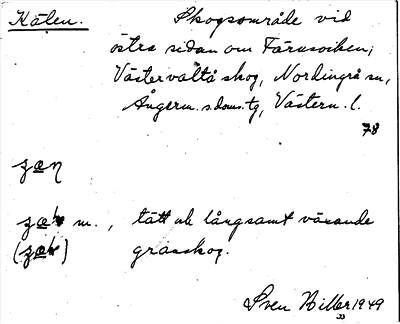 Kälen. Skogsområde vid
östra sidan om Färnsviken,
Västervålta skog, Nordingrå sn,
Ångerm. s. doms. tg, Västern. l.
78
m., tätt uk långsamt växande
granskog.
Sven Biller 1949